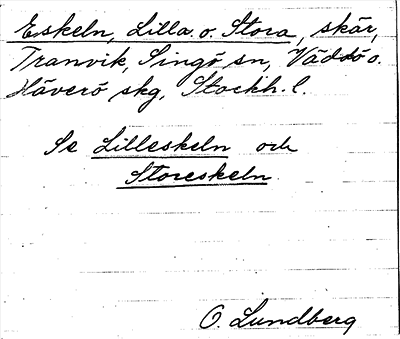 Eskeln, Lilla o. Stora, skär,
Tranvik, Singö sn, Väddö o.
Häverö skg, Stockh. l.
Se Lilleskeln och
Storeskeln.
O. Lundberg